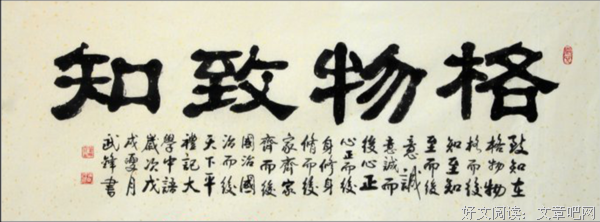 格物致知
致知在
格物物
格而後
知至知
至而後
意誠
意誠而
後心正
心正而後
身修身
修而後
家齊家
齊而後
國治國
治而後
天下平
禮記大
學中語
歲次戊
戌夏月
武煒書
好文阅读：文章吧网